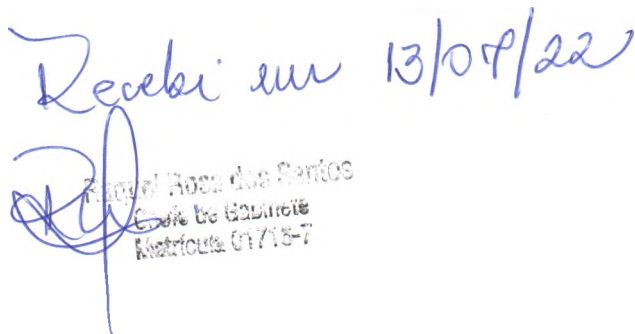 Recebi em 13/07/22
Raquel Rosa dos Santos
Chefe de Gabinete
Matrícula 01715-7